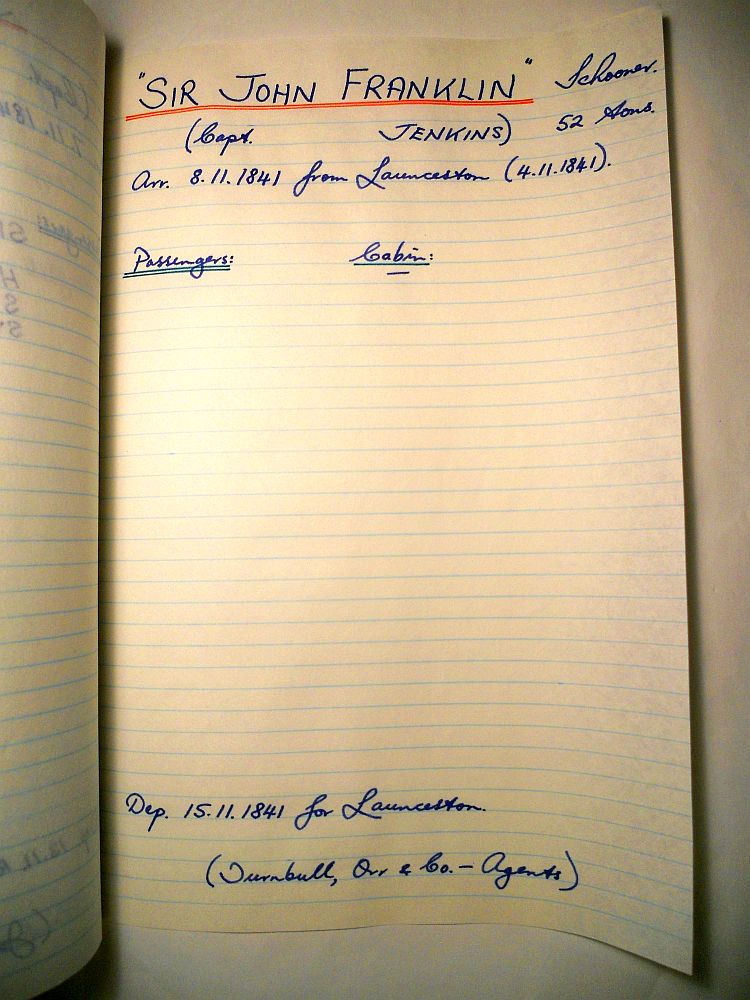 "SIR JOHN FRANKLIN" Schooner.
(Capt. JENKINS) 52 tons.
Arr. 8.11.1841 from Launceston (4.11.1841).
Passengers: Cabin:
—
Dep. 15.11.1841 for Launceston.
(Turnbull, Orr & Co. - Agents)